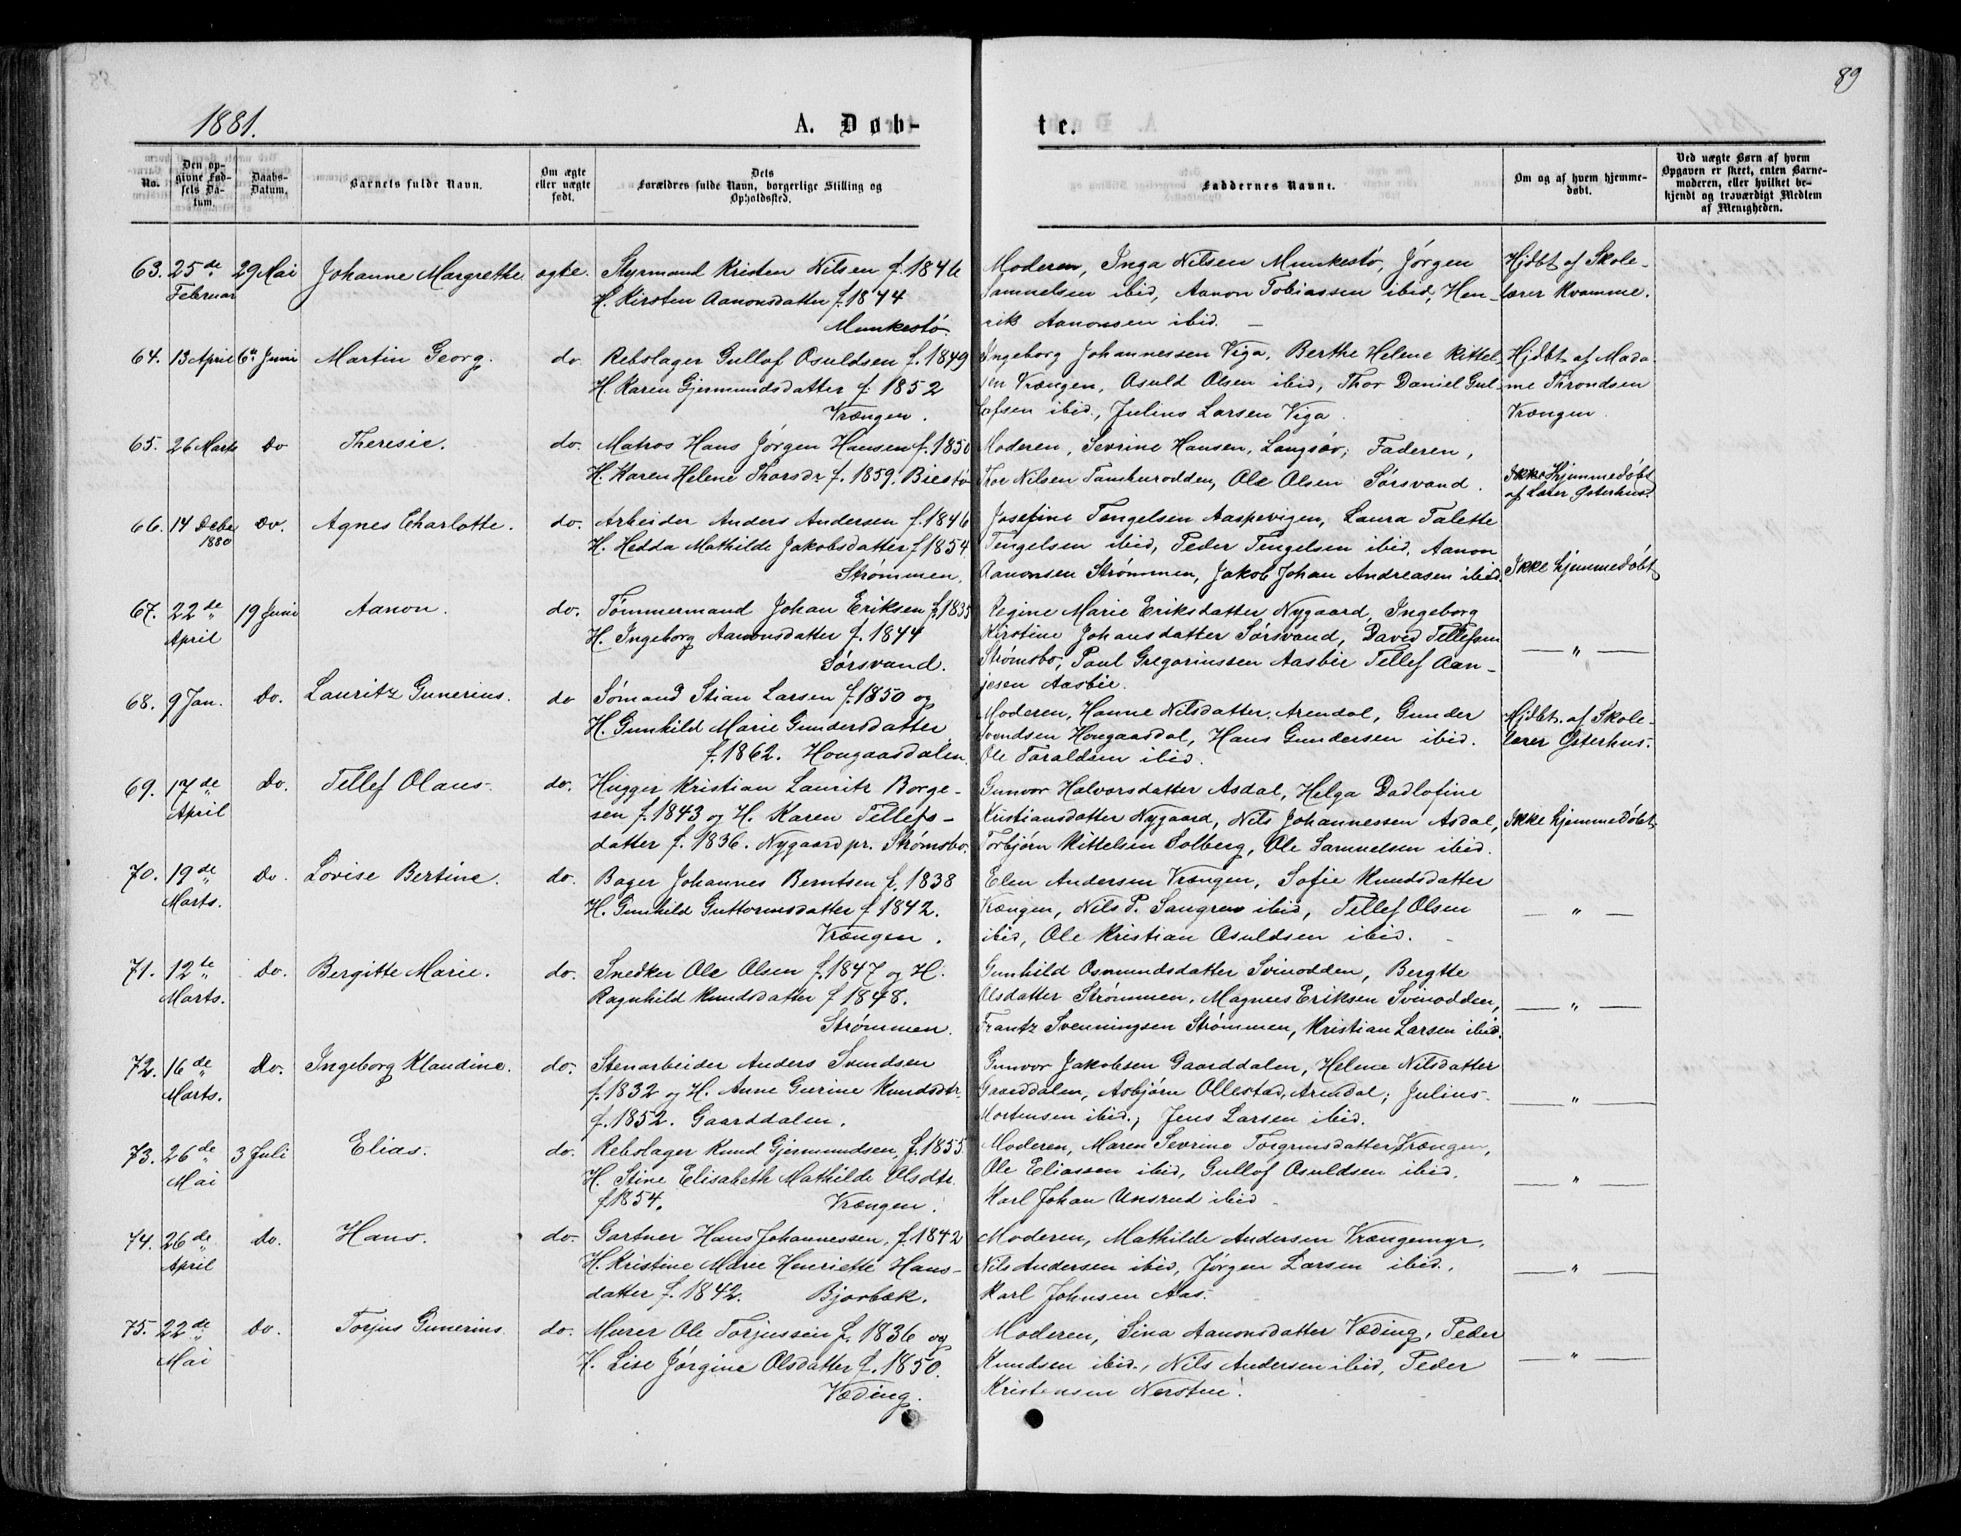 89
1881.
A. Døb-
te.
No.
Den op-
givne Fød-
sels Da-
tum.
Daabs-
Datum.
Barnets fulde Navn.
Om ægte
eller uægte
født.
Dets
Forældres fulde Navn, borgerlige Stilling og
Opholdssted.
Faddernes Navne.
Om og af hvem hjemme-
døbt.
Ved uægte Børn af hvem
Opgaven er skeet, enten Barne-
moderen, eller hvilket be-
kjendt og troværdigt Medlem
af Menigheden.
63. 25de 29 Mai Johanne Margrethe ægte. Styrmand Kristen Nilsen f. 1846 Moderen, Inga Nilsen Munkestø, Jørgen Hjdbt af Skole-
Februar H. Kirsten Aanonsdatter f. 1844 Samuelsen ibid, Aanon Tobiassen ibid, Hen- lærer Kvamme.
Munkestø. rik Aanonsen ibid. —
64. 13 April 6te Juni Martin Georg. do. Rebslager Gullof Osuldsen f. 1849 Ingeborg Johannessen Viga, Berthe Helene Kittel- Hjdbt af Mada-
H. Karen Gjermundsdatter f. 1852 sen Vrængen, Osuld Olsen ibid, Thor Daniel Gul- me Throndsen
Vrængen. lofsen ibid, Julius Larsen Viga. Vrængen.
65. 26 Marts Do Theresie. do. Matros Hans Jørgen Hansen f. 1850 Moderen, Sevrine Hansen, Langsæv, Faderen,
H. Karen Helene Thorsdr f. 1859. Biestø Thor Nilsen Tambursodden, Ole Olsen Sørsvand. Ikke Hjemmedøbt
af Lærer Osterhus.
66. 14 Decbr Do. Agnes Charlotte. do. Arbeider Anders Andersen f. 1846 Josefine Tengelsen Aaspevigen, Laura Talette
1880 H. Hedda Mathilde Jakobsdatter f 1854 Tengelsen ibid, Peder Tengelsen ibid. Aanon
Strømmen. Aanonsen Strømmen, Jakob Johan Andreasen ibid. Ikke hjemmedøbt
67. 22de 19 Juni Aanon. do. Tømmermand Johan Eriksen f. 1835 Regine Marie Eriksdatter Nygaard, Ingeborg
April H. Ingeborg Aanonsdatter f. 1844 Kirstine Johansdatter Sørsvand, David Tellefsen
Sørsvand. Strømsbo, Paul Gregoriussen Aasbie Tellef Aan- — " —
jesen Aasbie.
68. 9 Jan. Do. Lauritz Gunerius. do Sømand Stian Larsen f. 1850 og Moderen, Hanne Nilsdatter, Arendal, Gunder Hjdbt. af Skole-
H. Gunhild Marie Gundersdatter Svendsen Hougaasdal, Hans Gundersen ibid. lærer Osterhus.
f. 1862. Hougaasdalen. Ole Taraldsen ibid.
69. 17de Do. Tellef Olaus. do. Hugger Kristian Lauritz Borge- Gunvor Halvorsdatter Asdal, Helga Dadlofine
April sen f. 1843 og H. Karen Tellefs- Kristiansdatter Nygaard, Nils Johannessen Asdal, Ikke hjemmedøbt
datter f. 1836. Nygaard pr. Strømsbo. Torbjørn Kittelsen Solberg, Ole Samuelsen ibid.
70. 19de Do. Lovise Bertine. do. Bager Johannes Berntsen f. 1838 Elen Andersen Vrængen, Sofie Knudsdatter
Marts. H. Gunhild Guttormsdatter f 1842. Vrængen, Nils P. Sangren ibid, Tellef Olsen — " —
Vrængen. ibid, Ole Kristian Osuldsen ibid.
71. 12te Do. Bergitte Marie. do. Snedker Ole Olsen f. 1847 og H. Gunhild Osmundsdatter Svinodden, Bergtte
Marts. Ragnhild Knudsdatter f 1848. Olsdatter Strømmen, Magnus Eriksen Svinodden, — " —
Strømmen. Frantz Svenningsen Strømmen, Kristian Larsen ibid.
72. 16de Do. Ingeborg Klaudine. do. Stenarbeider Anders Svendsen Gunvor Jakobsen Gaarddalen, Helene Nilsdatter
Marts. f. 1832 og H. Anne Gurine Knudsdtr. Gaarddalen, Asbjørn Ollestad, Arendal, Julius — " —
f. 1852. Gaarddalen. Mortensen ibid., Jens Larsen ibid.
73. 26de 3 Juli Elias. do. Rebslager Knud Gjermundsen, f. 1855. Moderen, Maren Sevrine Torgrimsdatter Vrængen,
Mai H. Stine Elisabeth Mathilde Olsdtr. Ole Eliassen ibid, Gullof Osuldsen ibid. — " —
f 1854. Vrængen. Karl Johan Unsrud ibid.
74. 26de Do. Hans. do. Gartner Hans Johannessen, f. 1842 Moderen, Mathilde Andersen Vrængemyr,
April H. Kristine Marie Henriette Hans- Nils Andersen ibid, Jørgen Larsen ibid. — " —
datter f. 1842. Bjorbæk. Karl Johnsen Aas.
75. 22de Do. Torjus Gunerius do. Murer Ole Torjussen f. 1836 og Moderen, Sina Aanonsdatter Væding, Peder
Mai H. Lise Jørgine Olsdatter f. 1850. Knudsen ibid., Nils Andersen ibid, Peder — " —
Væding. Kristensen Nersten.